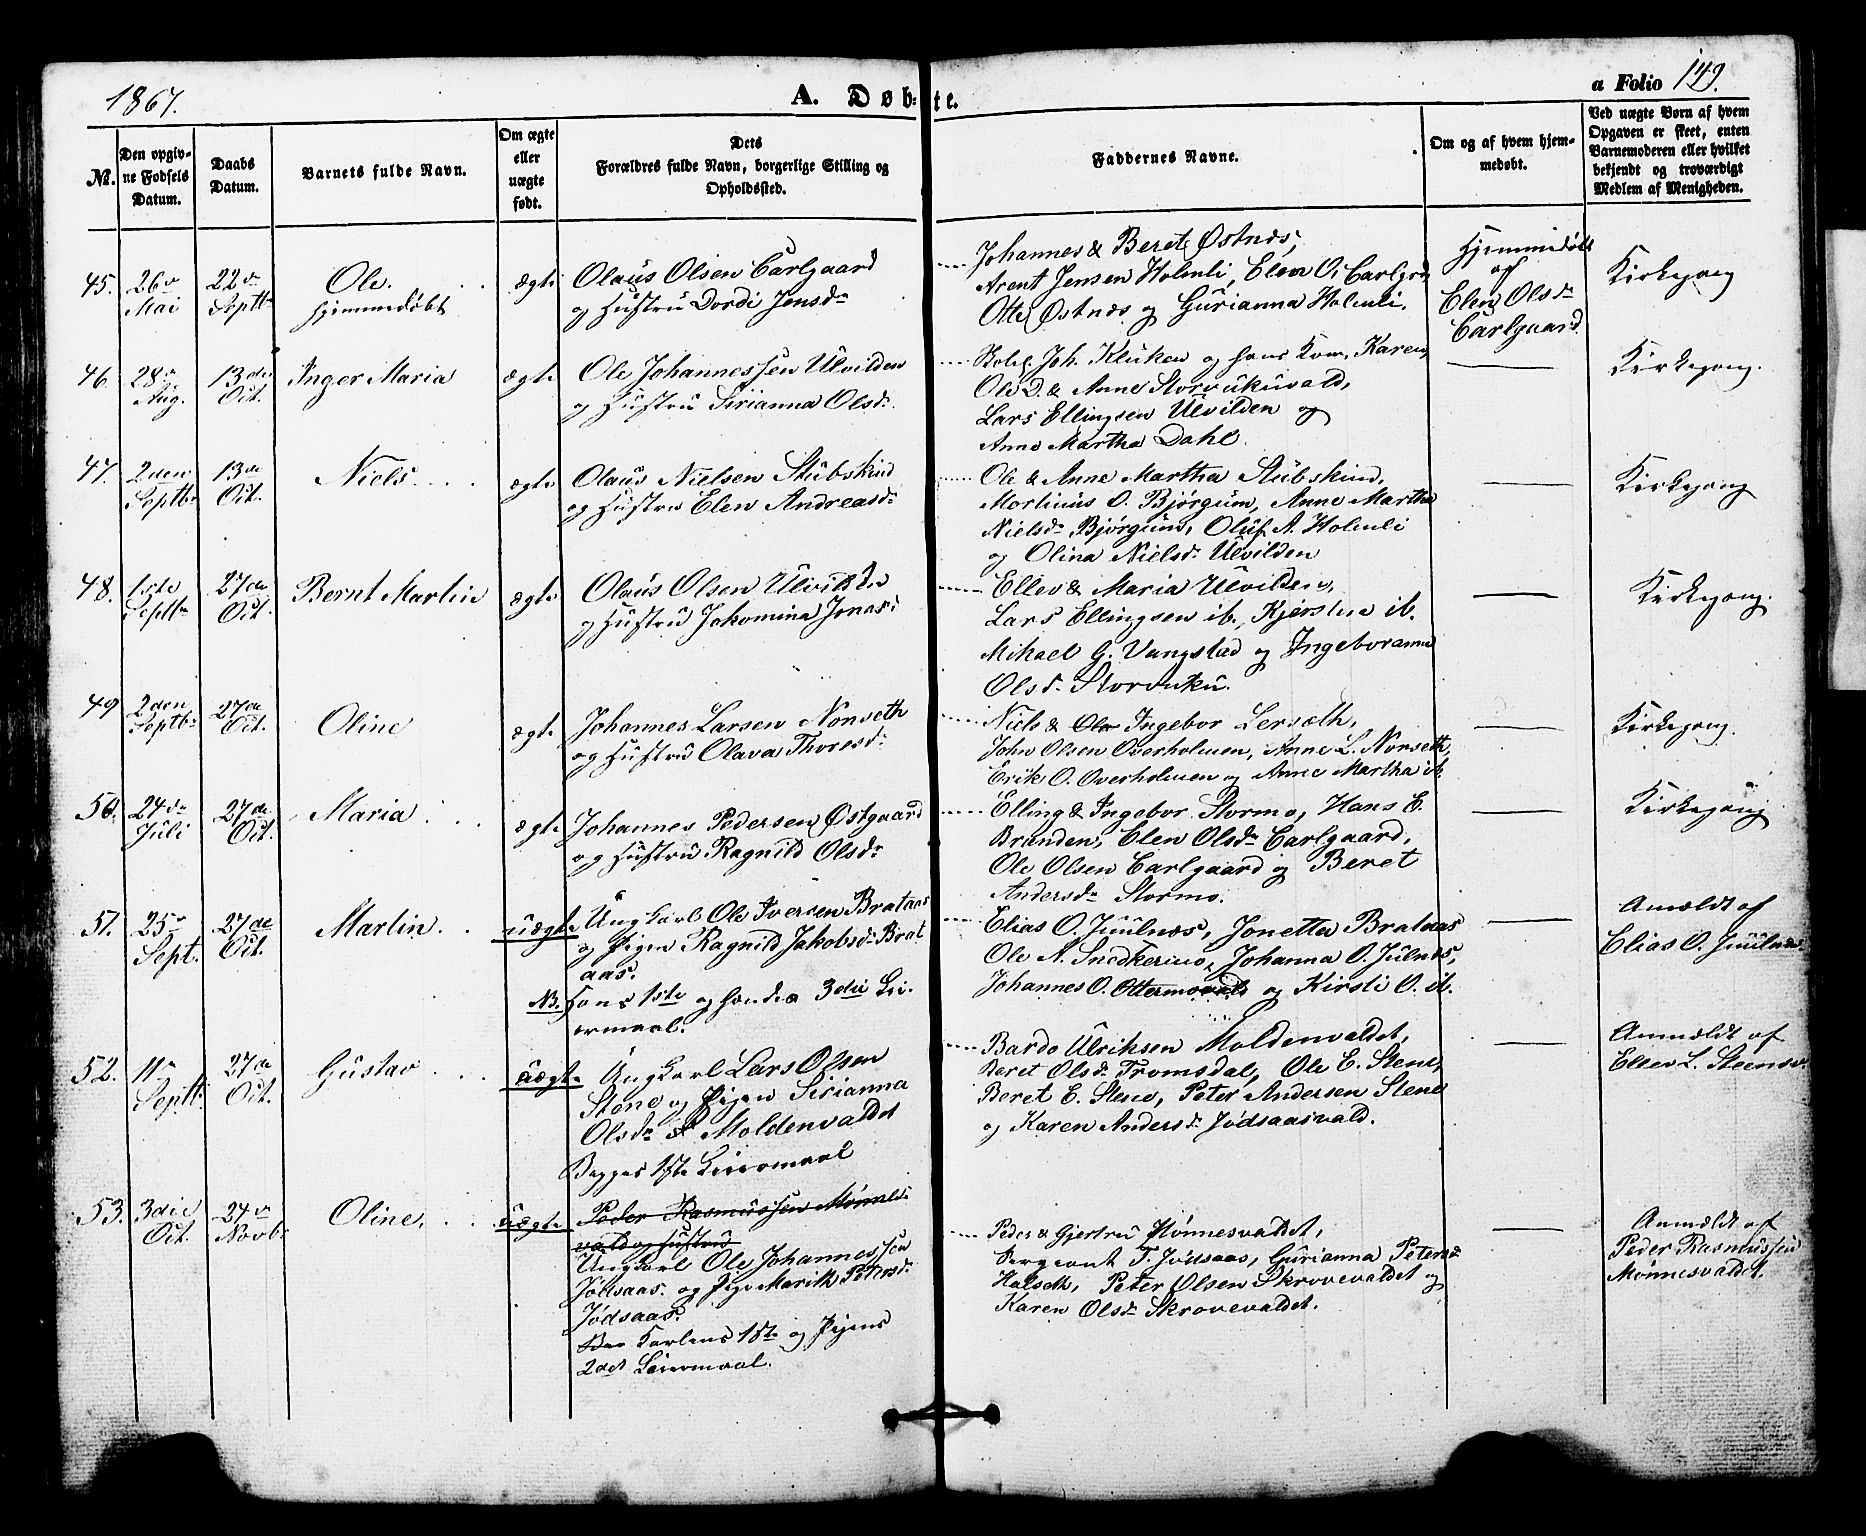 1867.
A. Døb-te.
a Folio 149.
№.
Den opgiv-
ne Fødsels
Datum.
Daabs
Datum.
Barnets fulde Navn.
Om ægte
eller
uægte
født.
Dets
Forældres fulde Navn, borgerlige Stilling og
Opholdssted.
Faddernes Navne.
Om og af hvem hjem-
medøbt.
Ved uægte Børn af hvem
Opgaven er skeet, enten
Barnemoderen eller hvilket
bekjendt og troværdigt
Medlem af Menigheden.
45.
26de
Mai
22de
Septbr
Ole.
hjemmedøbt
ægte
Olaus Olsen Carlgaard
og Hustru Dordi Jensdr
Johannes & Beret Østnes,
Arent Jensen Holmli, Elen O. Carlgrd
Otte Østnes og Gurianna Holmli.
Hjemmedøbt
af
Elen Olsdr
Carlgaard
Kirkegang
46.
28de
Aug.
13de
Oct.
Inger Maria
ægte
Ole Johannessen Ulvilden
og Hustru Sirianna Olsdr.
Joh. Kluken og hans Kone Karen,
Ole D. & Anne Storvukuvald,
Lars Ellingsen Ulvilden og
Anne Martha Dahl.
Kirkegang.
47.
2den
Septbr
13de
Oct.
Niels
ægte
Olaus Nielsen Stubskind
og Hustru Elen Andreasdr
Ole & Anne Martha Stubskind,
Martinus O. Bjørgum, Anne Martha
Nielsdr Bjørgum, Oluf A. Holmli
og Olina Nielsdr Ulvilden
Kirkegang
48.
1ste
Septbr
27de
Oct.
Bernt Martin
ægte
Olaus Olsen Ulvilden
og Hustru Jakomina Jonasd
Ellev & Maria Ulvilden,
Lars Ellingsen ib., Kjerstine ib.
Mikael G. Vangstad og Ingeboranna
Olsd. Storvuku.
Kirkegang.
49
2den
Septbr
27de
Oct.
Oline
ægte
Johannes Larsen Nonseth
og Hustru Olava Thoresdr
Niels & Ingebor Lerseth,
John Olsen Overholmen, Anne L. Nonseth,
Erik O. Overholmen og Anne Martha ib
Kirkegang.
50.
24de
Juli
27de
Oct.
Maria
ægte
Johannes Pedersen Østgaard
og Hustru Ragnild Olsdr
Elling & Ingebor Stormo, Hans E.
Branden, Elen Olsdr Carlgaard,
Ole Olsen Carlgaard og Beret
Andersdr Stormo.
Kirkegang
51.
25de
Sept.
27de
Oct.
Martin.
uægte
Ungkarl Ole Iversen Brataas
og Pigen Ragnild Jakobsdr Brat
aas.
NB. Hans 1ste og hendes 3die Lei-
ermaal.
Elias O. Juulnes, Jonetta Brataas
Ole N. Snedkermo, Johanna O. Julnes,
Johannes O. Ottermovald og Kirsti O. ib.
Anmeldt af
Elias O. Juulnes
52.
11te
Septbr
27de
Oct.
Gustav
uægte
Ungkarl Lars Olsen
Stene og Pigen Sirianna
Olsdr Moldenvaldet
Begges 1ste Leiermaal
Bardo Ulriksen Moldenvaldet,
Beret Olsdr Tromsdal, Ole E. Stene,
Beret E. Stene, Peter Andersen Stene
og Karen Andersdr Jødsaasvald.
Anmeldt af
Ellev L. Steensv.
53.
3die
Oct.
24de
Novbr
Oline.
uægte
Peder Rasmussen Mønnes
vald og Hustru
Ungkarl Ole Johannessen
Jødsaas. og Pige Marith Petersdr
Jødsaas.
Karlens 1ste og Pigens
2det Leiermaal.
Peder & Gjertru Mønnesvaldet,
Sergeant T. Jødsaas, Gurianna Petersdr
Halseth, Peter Olsen Skrovevaldet og
Karen Olsdr Skrovevaldet.
Anmeldt af
Peder Rasmussen
Mønnesvaldet.